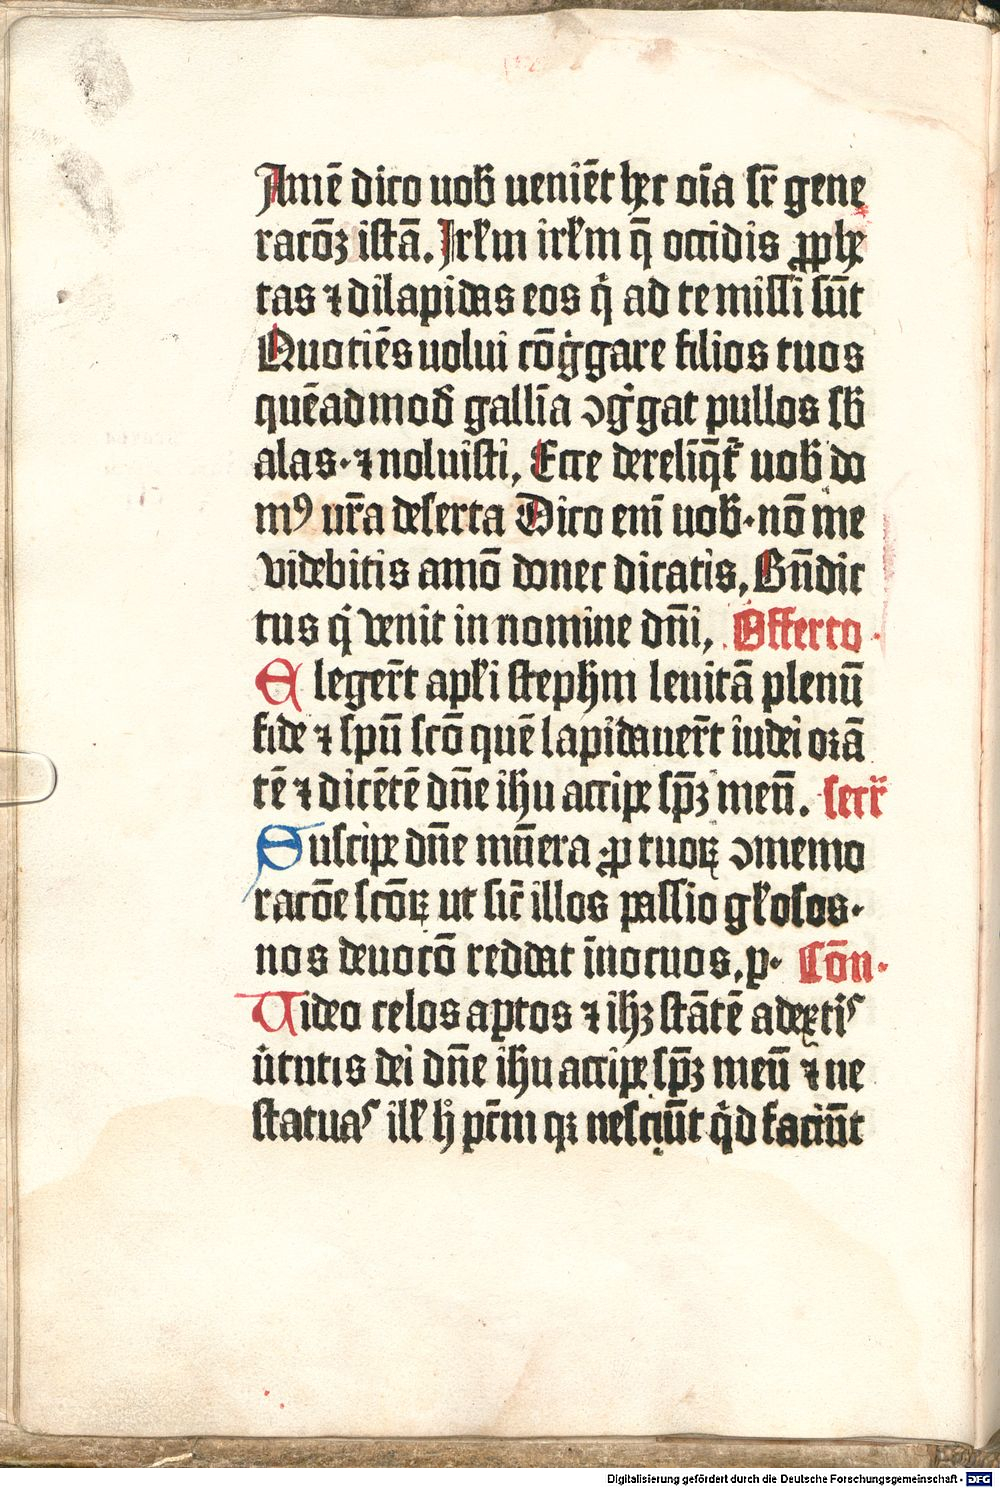 Amē dico uob̄ ueniēt hec oīa sr̄ gene
racōꝫ istā. Jrlm̄ irlm̄ q̄ occidis ꝓphe
tas ⁊ dilapidas eos q̇ ad te missi sūt
Quotiēs uolui cōgͥgare filios tuos
quēadmod̄ gallīa ↄgͥgat pullos sb̄
alas. ⁊ noluisti, Ecce derelīq̄t̄ uob̄ do
mꝰ ur̄a deserta Dico enī uob̄. nō me
videbitis amō donec dicatis, Bn̄dic
tus q̇ venit in nomine dn̄i, Offerto
Elegerūt apl̄i stephm̄ leuitā plenū
fide ⁊ spū scō quē lapidauer̄t iudei orā
tē ⁊ dicētē dn̄e ih̄u accipe sp̄ꝫ meū. secr̄
Suscipe dn̄e mūera ꝓ tuoꝝ ↄmemo
racōe scōꝝ ut sic̄ illos passio gl̄osos.
nos deuocō reddat īnocuos, p. Cōn.
Uideo celos aptos ⁊ ih̄ꝫ stātē adextiˢ
u̇tutis dei dn̄e ih̄u accipe sp̄ꝫ meū ⁊ ne
statuaˢ ill̄ h̄ pc̄m qꝫ nesciūt q̇d faciūt
Digitalisierung gefördert durch die Deutsche Forschungsgemeinschaft - DFG